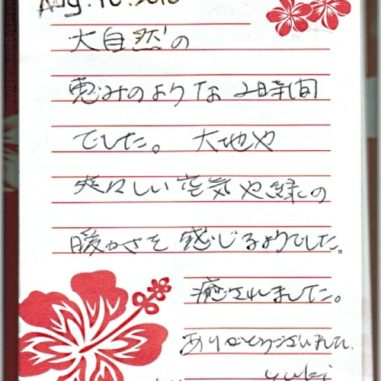 Aug. 10. 2010
大自然の
恵みのような 2時間
でした。 大地や
爽々しい空気や緑の
暖かさを 感じるようでした。
癒されました。
ありがとうございました。
yuki